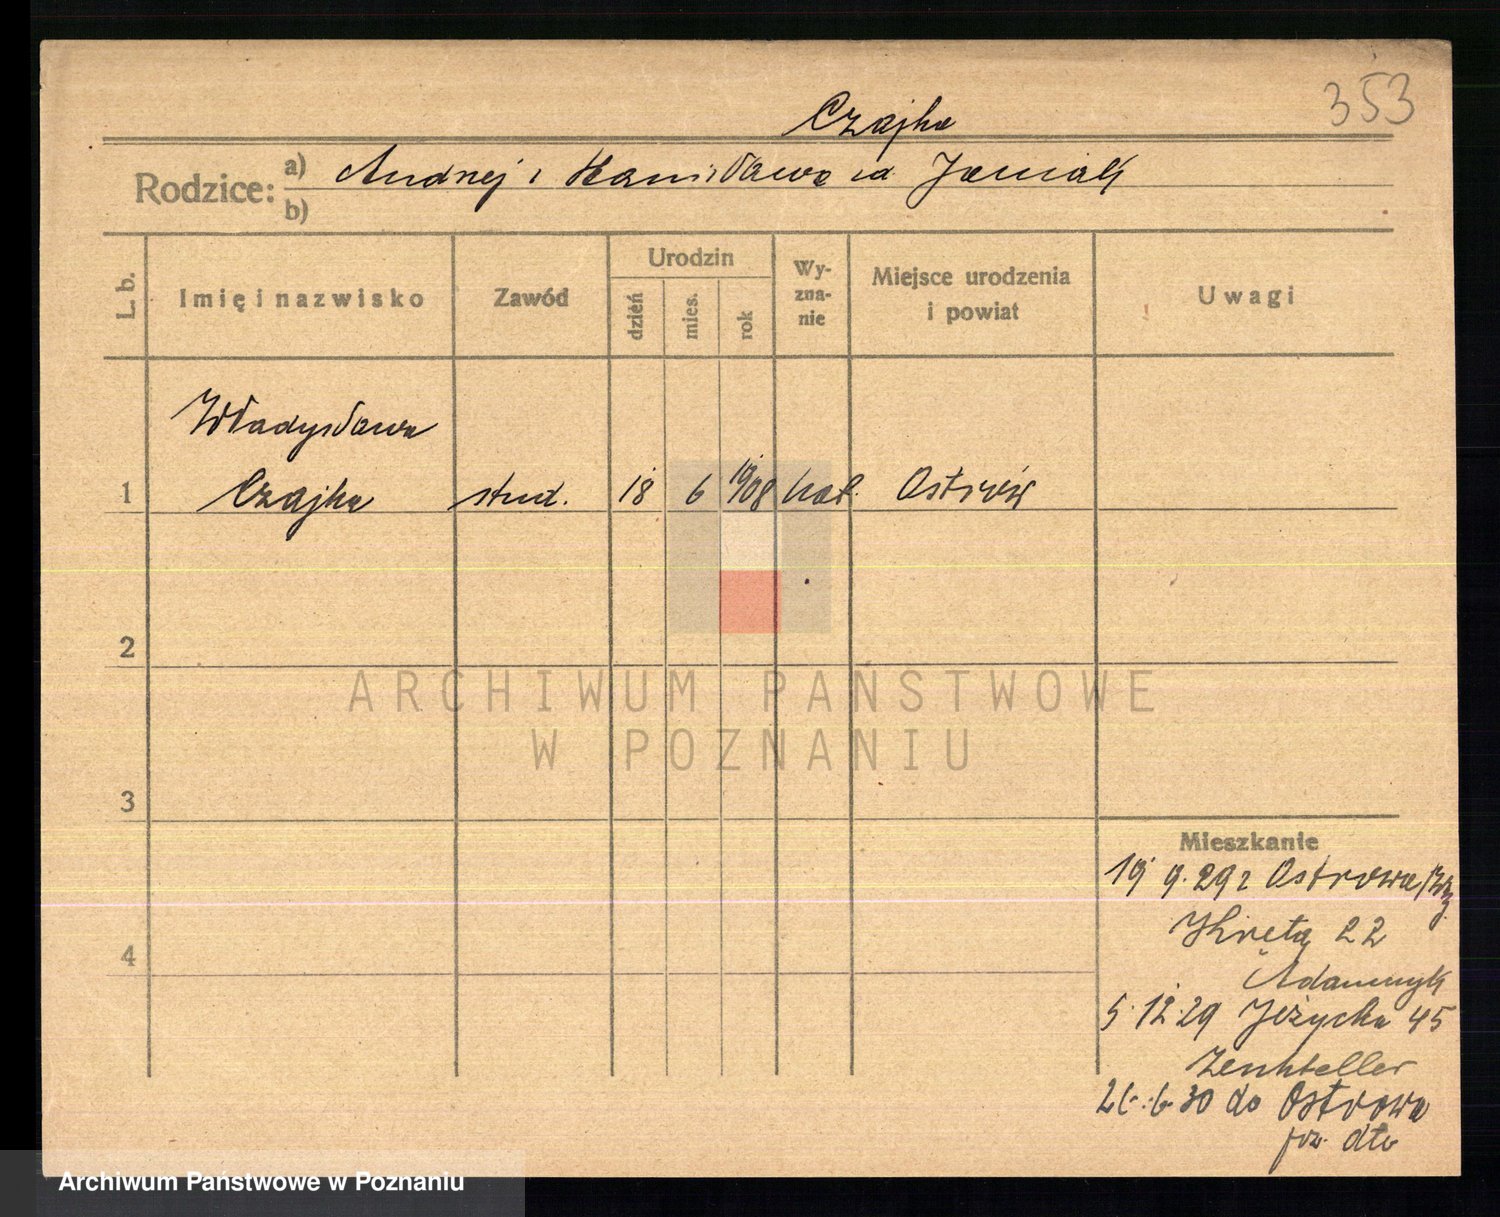 353
Czajka
Rodzice: a) Andrzej i Stanisława zd. Jasiak
b)
L. b.
Imię i nazwisko
Zawód
Urodzin
dzień
mies.
rok
Wy-
zna-
nie
Miejsce urodzenia
i powiat
Uwagi
Władysława
1 Czajka stud. 18 6 1908 kat. Ostrów
2
ARCHIWUM PAŃSTWOWE
W POZNANIU
3
Mieszkanie
19 9. 29 z Ostrowa
Kręta 22
4
Adamczyk
5. 12. 29 Jeżycka 45
Zenkteller
26. 6. 30 do Ostrowa
dto
Archiwum Państwowe w Poznaniu